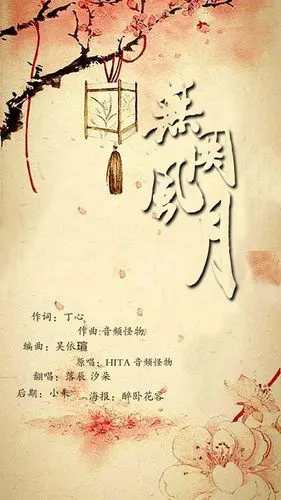 無関風月
作词：丁心
作曲:音频怪物
编曲：吴依瑄
原唱：HITA 音频怪物
翻唱：落辰 汐朵
后期：小未
海报：醉卧花容